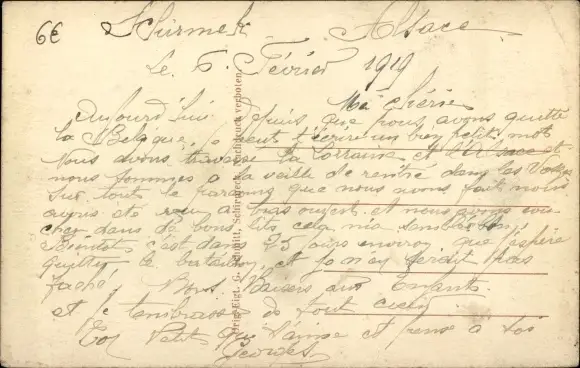 6€
Schirmek Alsace
Le 6 Février 1919
Ma chérie
Aujourd'hui depuis que nous avons quitté
la Belgique, je peut t'écrire un bien petit mot
Nous avons traversé la Lorraine et l'Alsace et
nous sommes a la veille de rentré dans les Vosges
Sur tout le parcours que nous avons fait nous
avons été reçu a bras ouvert et nous avons cou
cher dans de bons lits cela m'a semblé bon
Bientot c'est dans 25 jours environ que j'espère
quitter le et je n'en serait pas
faché. Bons Baisers aux Enfants
et je t'embrasse de tout cœur
Ton Petit que t'aime et pense a toi
Georges